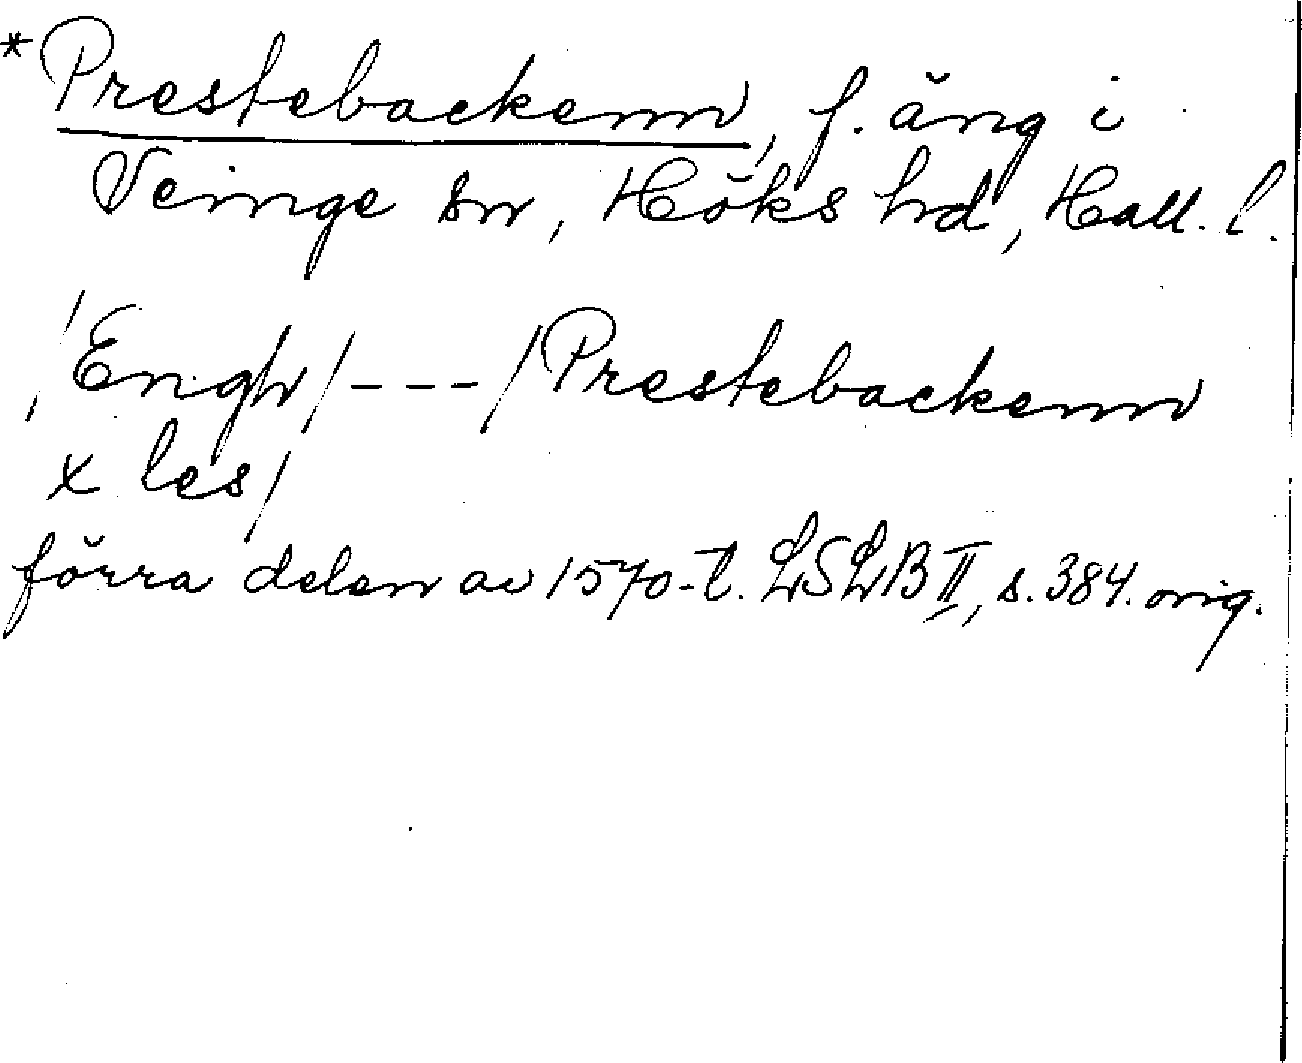 *Prestebackenn, f. äng i
Veinge sn, Höks hd, Hall. l.
/Engh/---/Prestebackenn
x les/
förra delen av 1570-t. LSLB II, s. 384. orig.